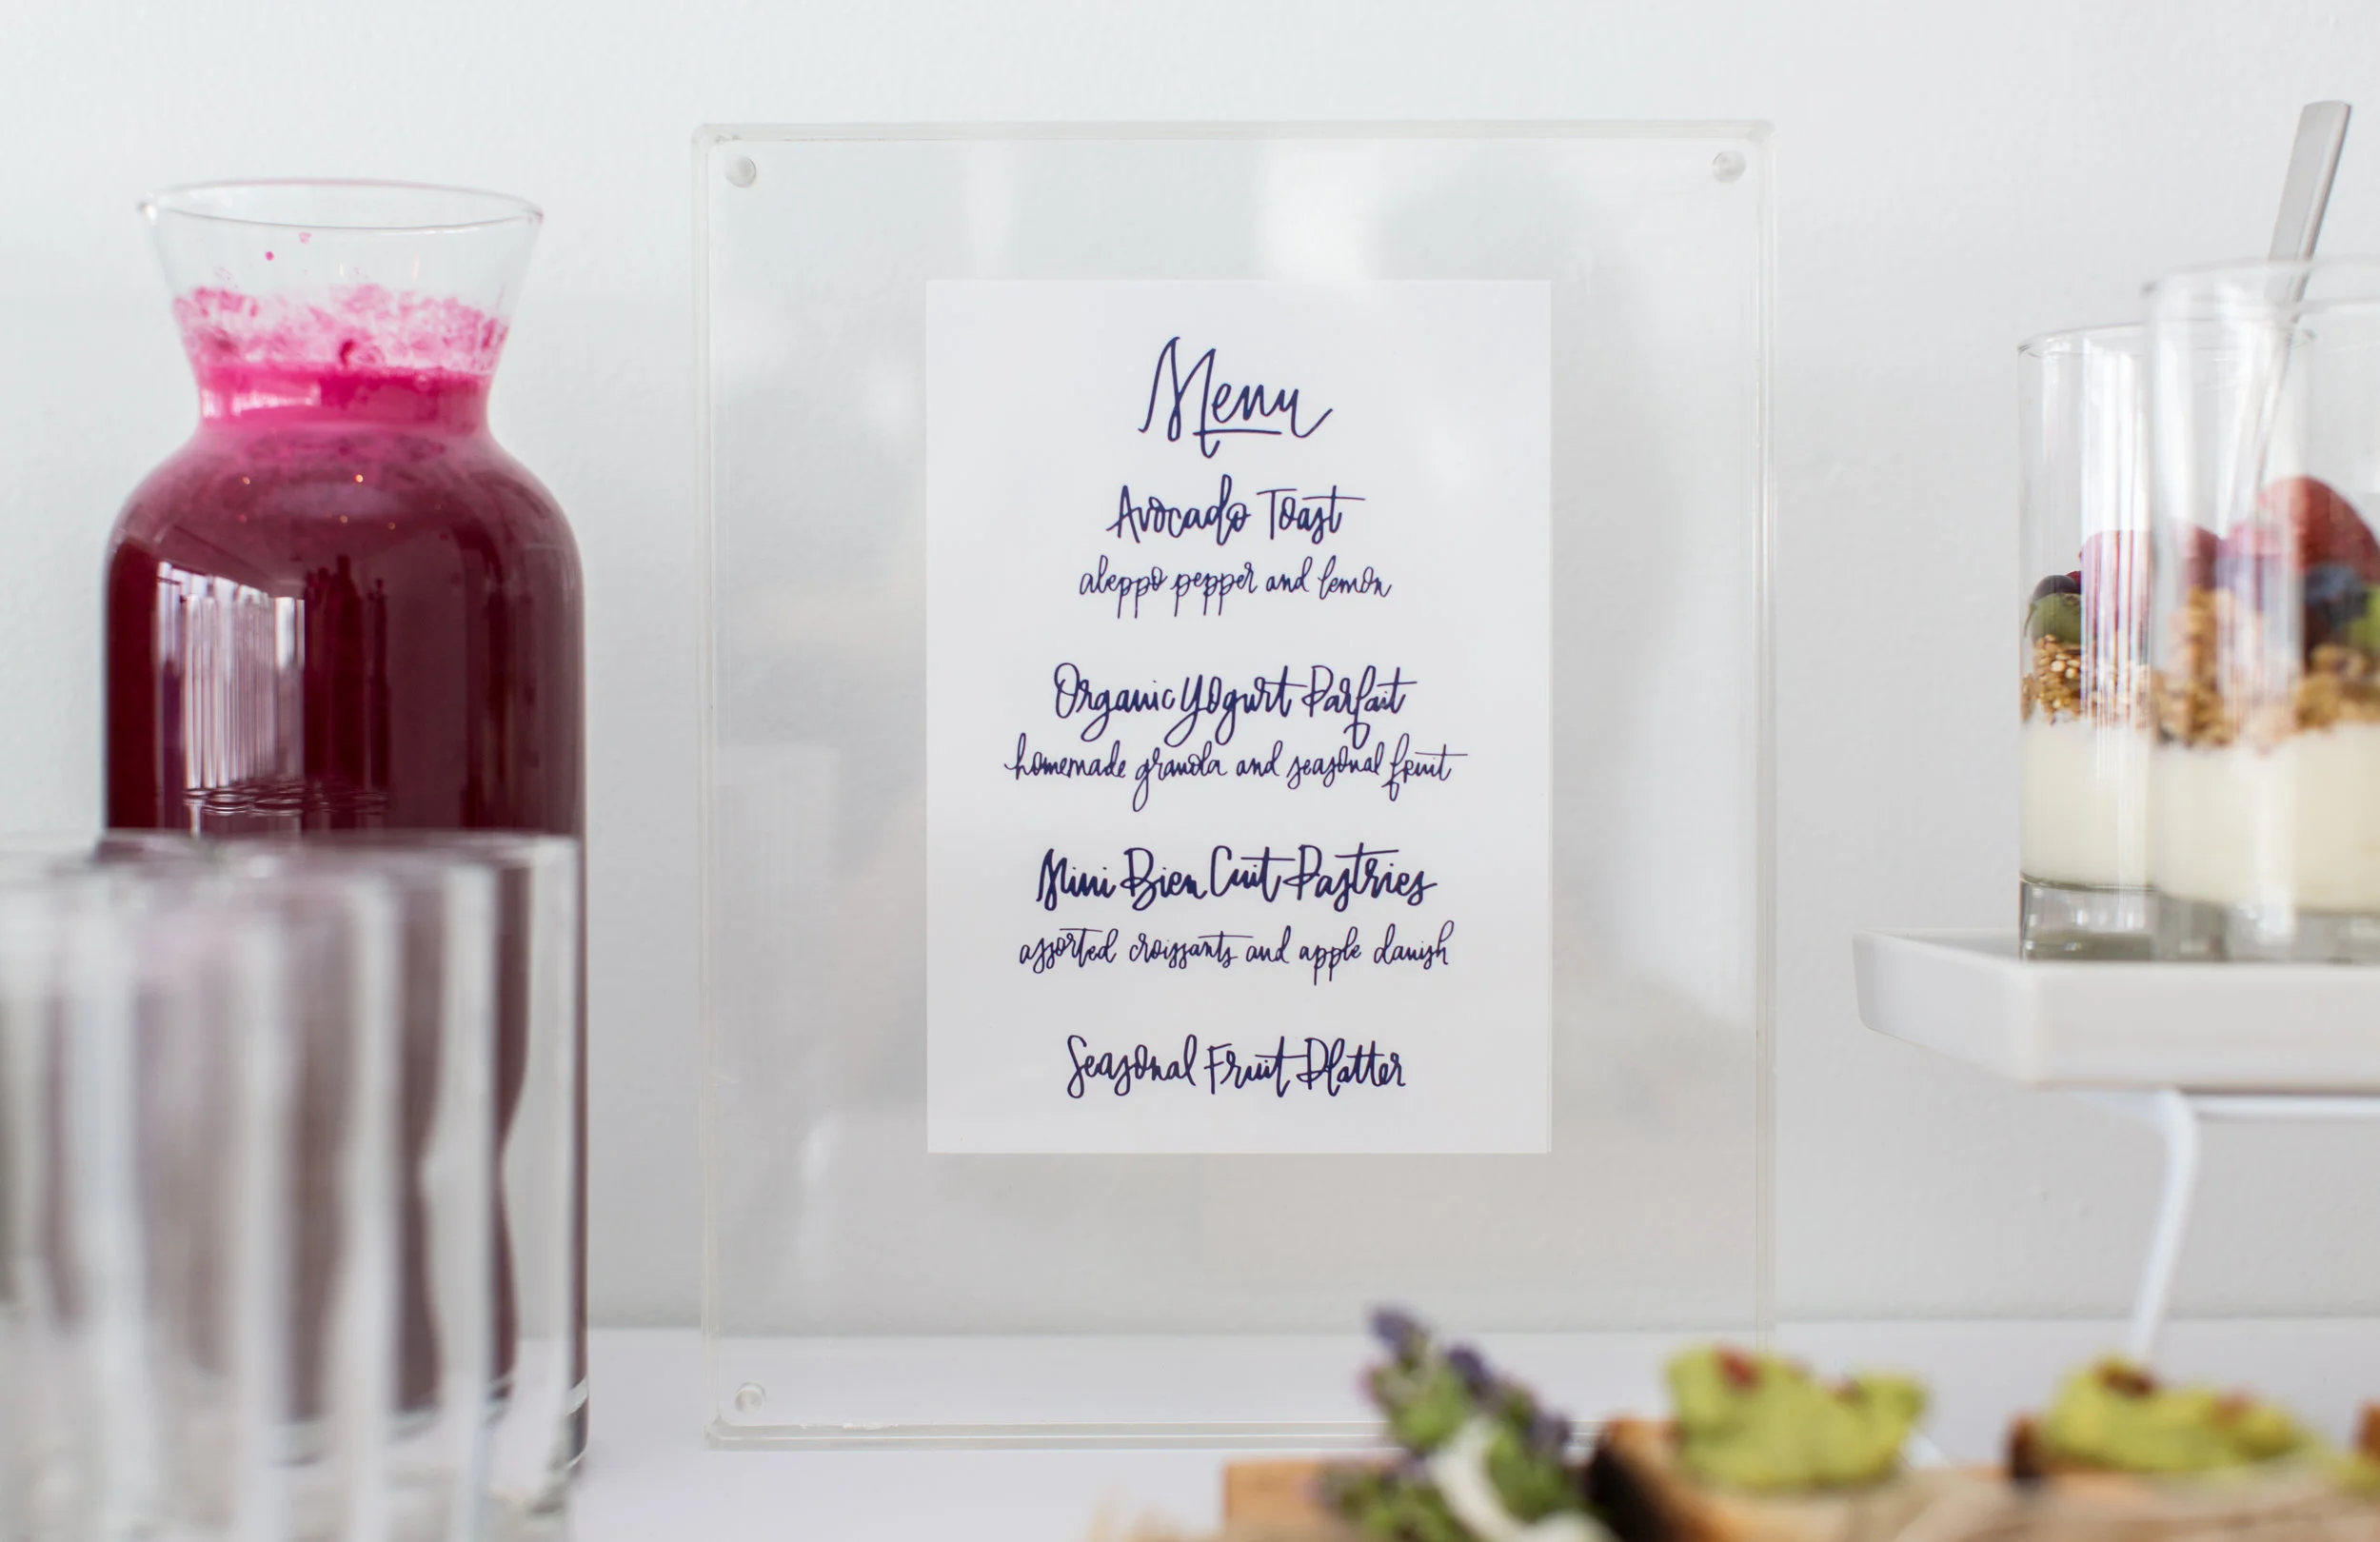 Menu
Avocado Toast
aleppo pepper and lemon
Organic Yogurt Parfait
homemade granola and seasonal fruit
Mini Bien Cuit Pastries
assorted croissants and apple danish
Seasonal Fruit Platter